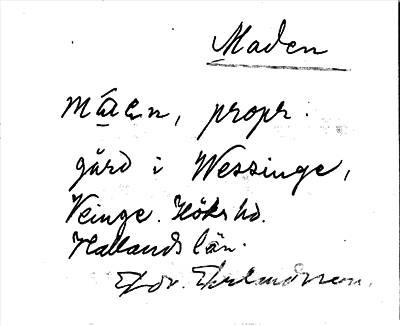 Maden
måen, propr.
gård i Wessinge,
Veinge. Höks hd.
Hallands län.
Edv. Erlandsson.